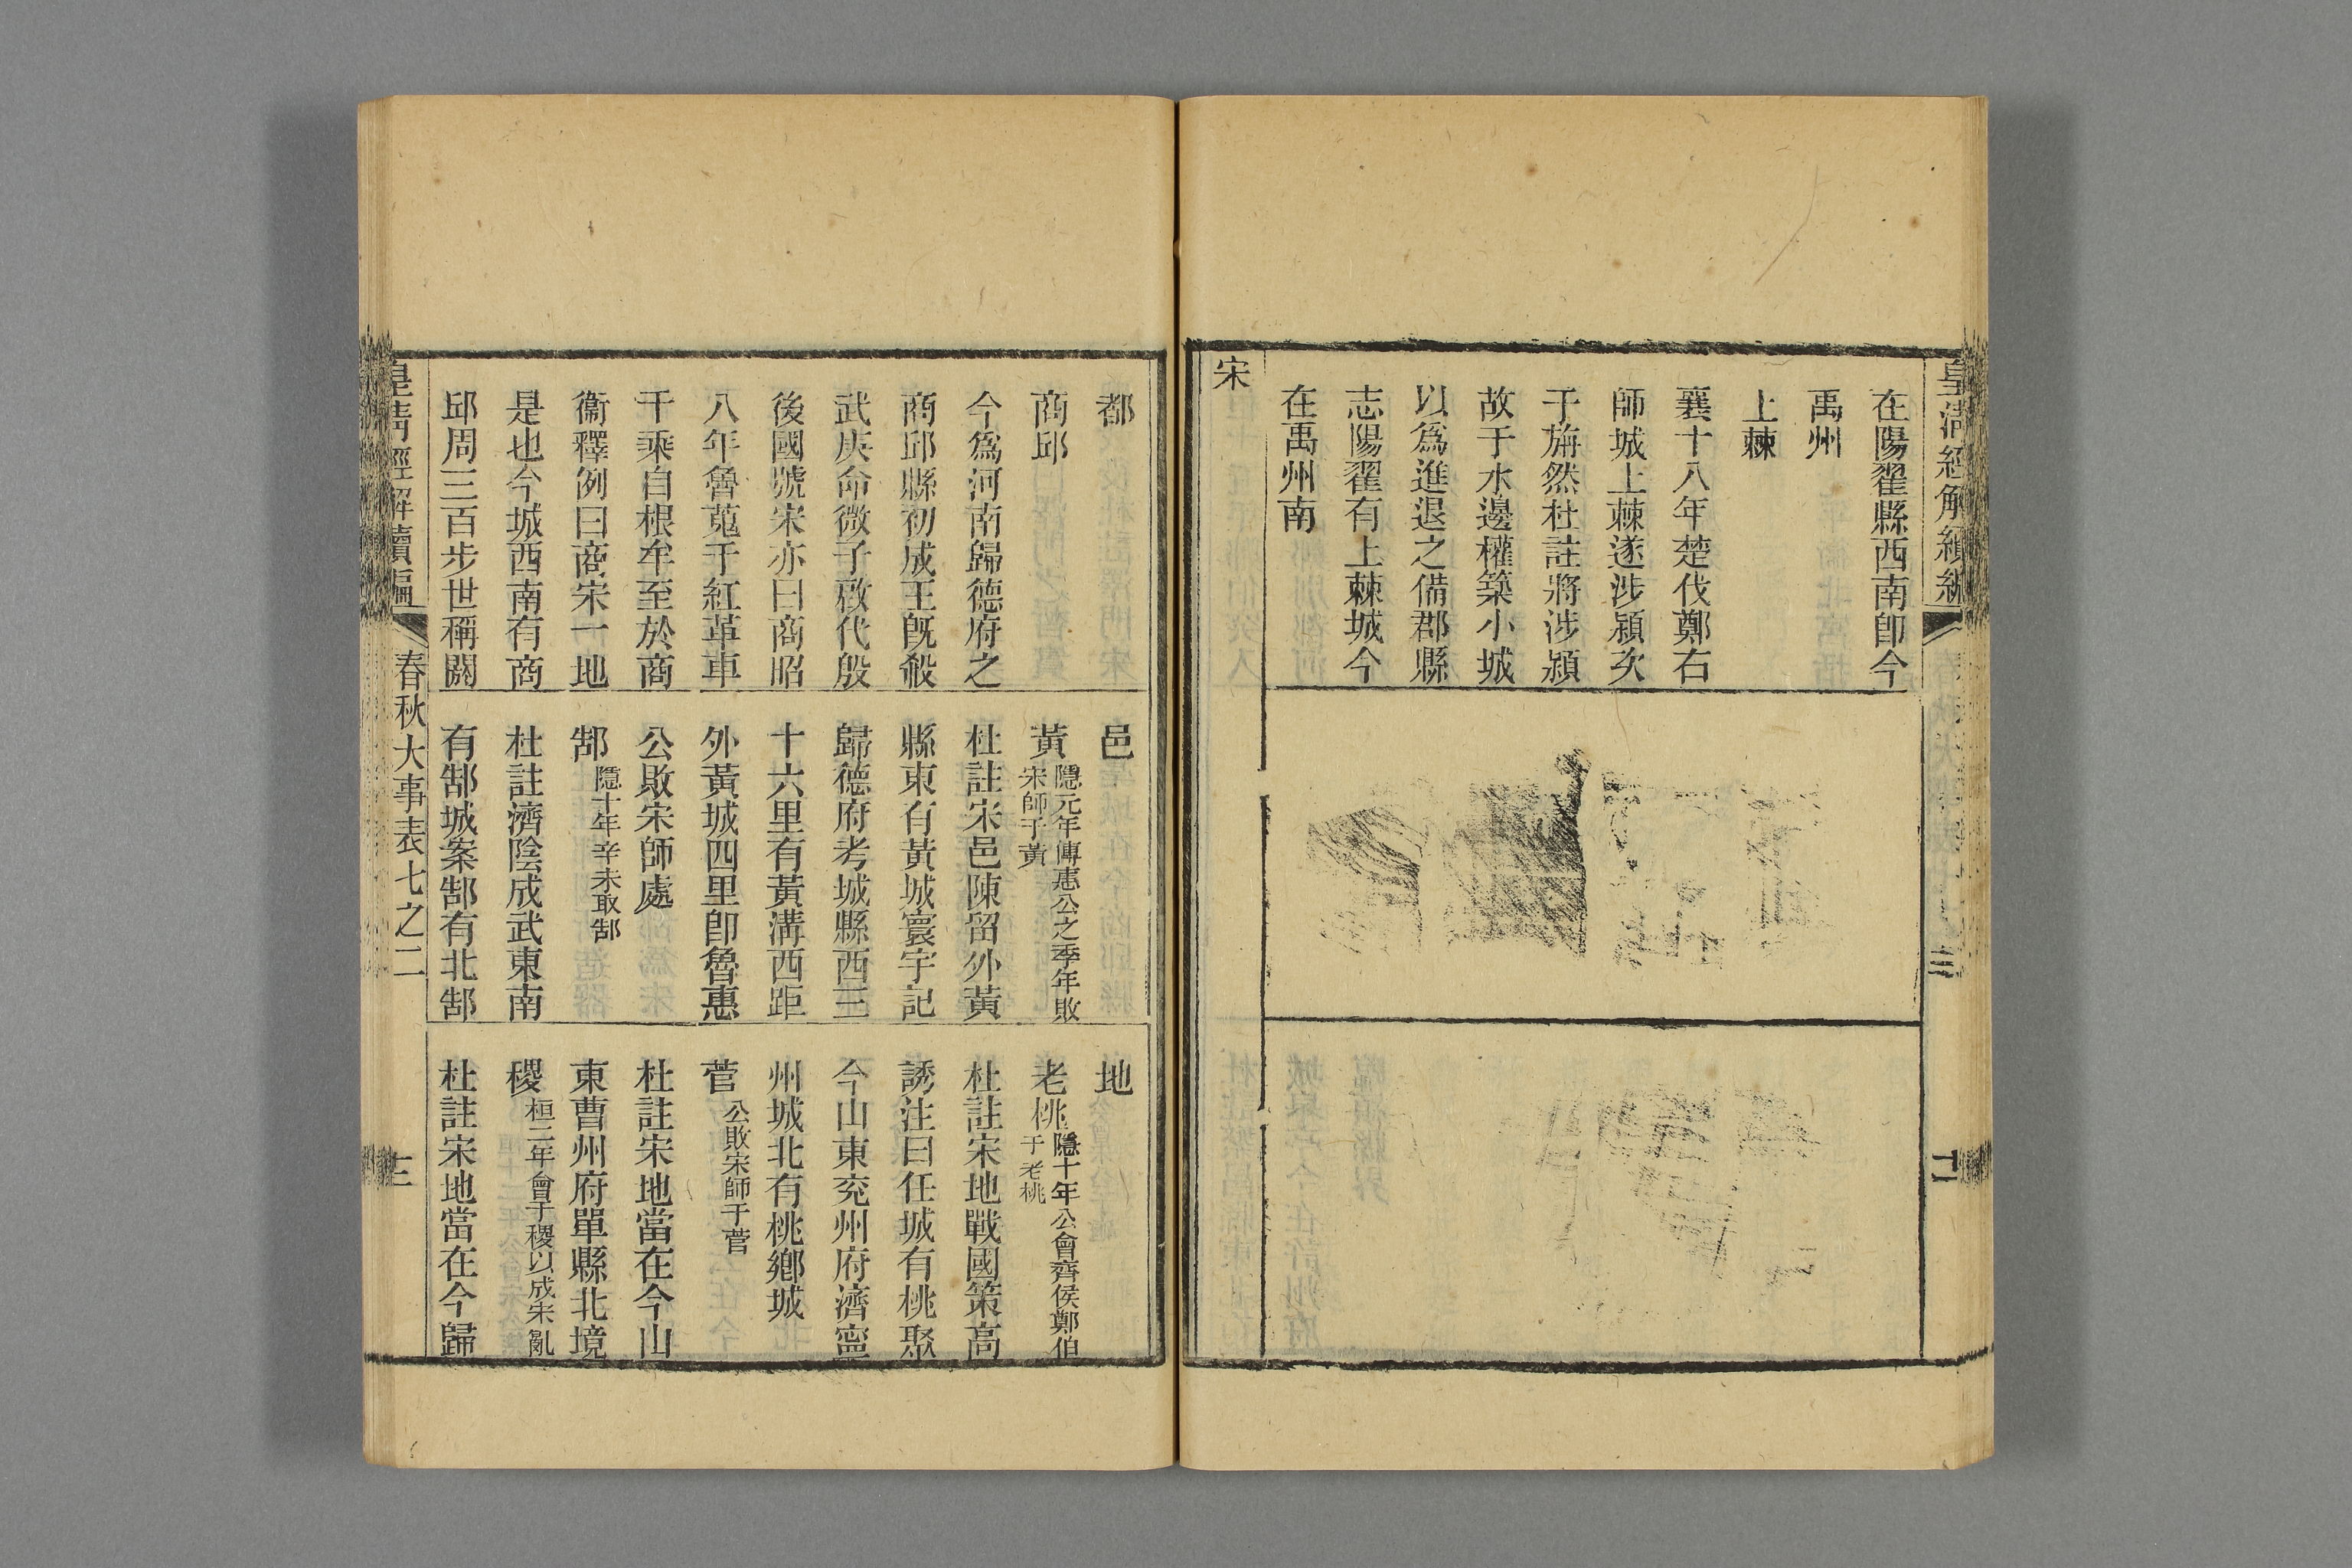 皇清經解續編
在陽翟縣西南卽今
禹州
上棘
襄十八年楚伐鄭右
師城上棘遂涉潁次
于旃然杜註將涉潁
故于水邊權築小城
以爲進退之備郡縣
志陽翟有上棘城今
在禹州南
宋
都
商邱
今爲河南歸德府之
商邱縣初成王旣殺
武庚命微子啟代殷
後國號宋亦曰商昭
八年魯蒐于紅革車
千乘自根牟至於商
衞釋例曰商宋一地
是也今城西南有商
邱周三百步世稱閼
邑
黃 隱元年傳惠公之季年敗
宋師于黃
杜註宋邑陳留外黃
縣東有黃城寰宇記
歸德府考城縣西三
十六里有黃溝西距
外黃城四里卽魯惠
公敗宋師處
郜 隱十年辛未取郜
杜註濟陰成武東南
有郜城案郜有北郜
地
老桃 隱十年公會齊侯鄭伯
于老桃
杜註宋地戰國策高
誘注曰任城有桃聚
今山東兗州府濟寧
州城北有桃鄉城
菅 公敗宋師于菅
杜註宋地當在今山
東曹州府單縣北境
稷 桓二年會于稷以成宋亂
杜註宋地當在今歸
皇清經解續編
春秋大事表七之二